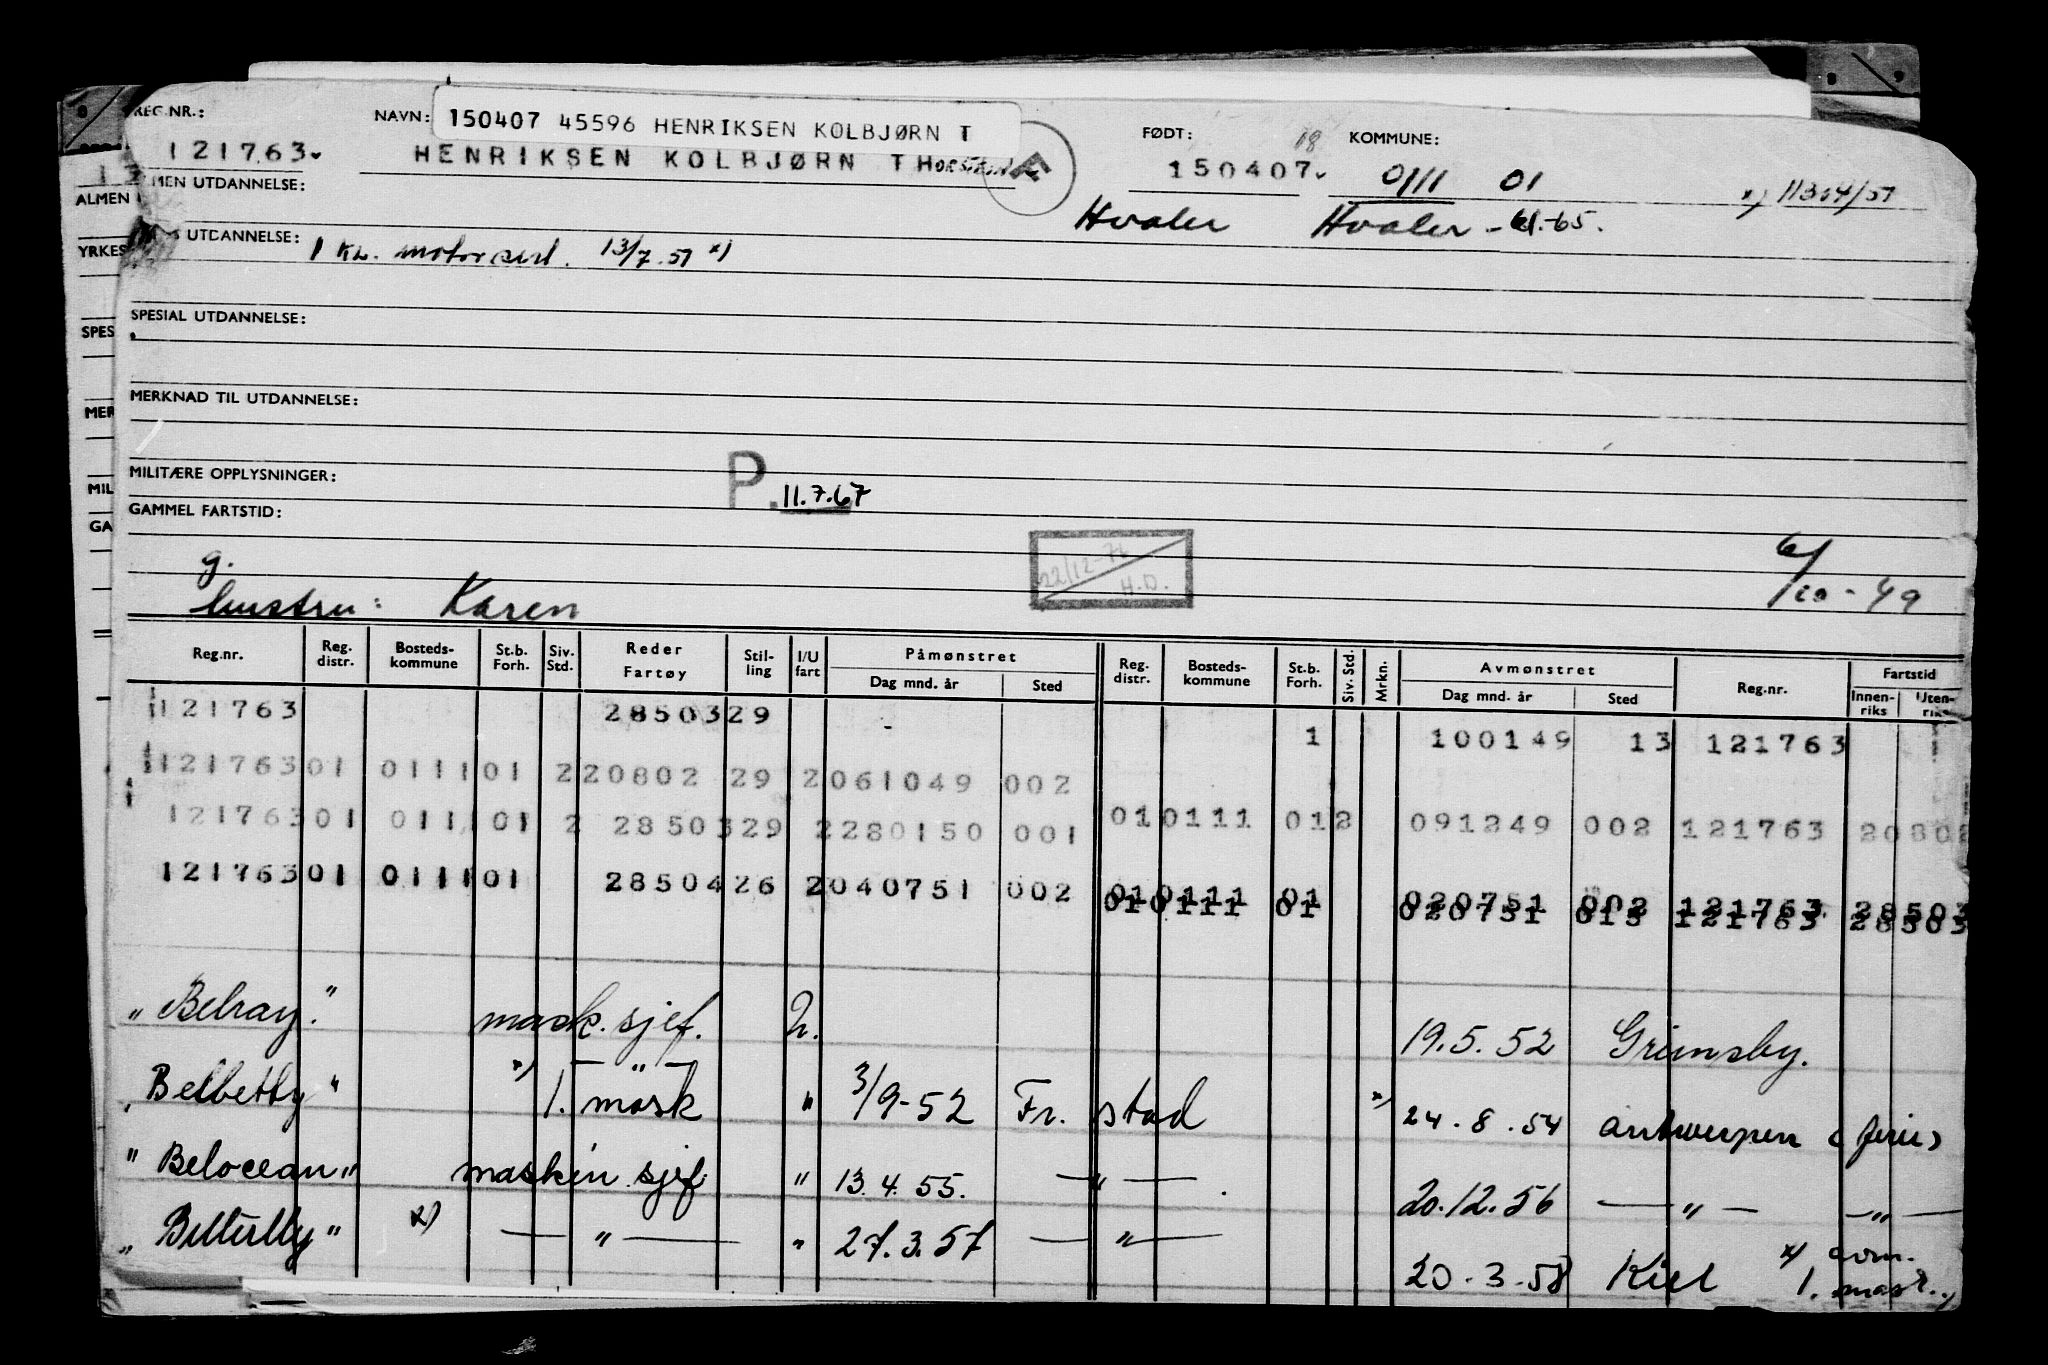 REG.NR.: NAVN: 150407 45596 HENRIKSEN KOLBJØRN T FØDT: 18 KOMMUNE:
121763 HENRIKSEN KOLBJØRN THORSTEIN F 150407 0111 01 x) 11304/51
MEN UTDANNELSE: Hvaler Hvaler - 61.-65.
ALMEN
YRKES UTDANNELSE: 1 kl. motorsert. 13/7.51 x)
SPES SPESIAL UTDANNELSE:
MER MERKNAD TIL UTDANNELSE:
MIL MILITÆRE OPPLYSNINGER: P. 11.7.67
GA GAMMEL FARTSTID:
22/12-71 H.D.
g. 6/10-49
hustru: Karen
Reg.nr. Reg. distr. Bosteds-kommune St.b. Forh. Siv. Std. Reder Fartøy Stil-ling I/U fart Påmønstret Dag mnd. år Sted Reg. distr. Bosteds-kommune St.b. Forh. Siv. Std. Mrkn. Avmønstret Dag mnd. år Sted Reg.nr. Fartstid Innen-riks Uten-riks
121763 28503 29 - 1 100149 13 121763
121763 01 0111 01 2 20802 29 2 061049 002 01 0111 01 2 091249 002 121763 20802
121763 01 0111 01 2 28503 29 2 280150 001 01 0111 01 020751 002 121763 28503
121763 01 0111 01 28504 26 2 040751 002 01 0111 01 020751 013 121763 28503
"Belray." mask. sjef. 2. 19.5.52 Grimsby.
"Belbetty" x) 1. mask — " — " 3/9-52 Fr. stad x) 24.8.54 Antwerpen (ferie)
"Belocean" maskin sjef " 13.4.55. — " — . 20.12.56 — " — — " —
"Belterby" x) — " — " 27.3.57 — " — 20.3.58 Kiel x) avm. 1. mask.